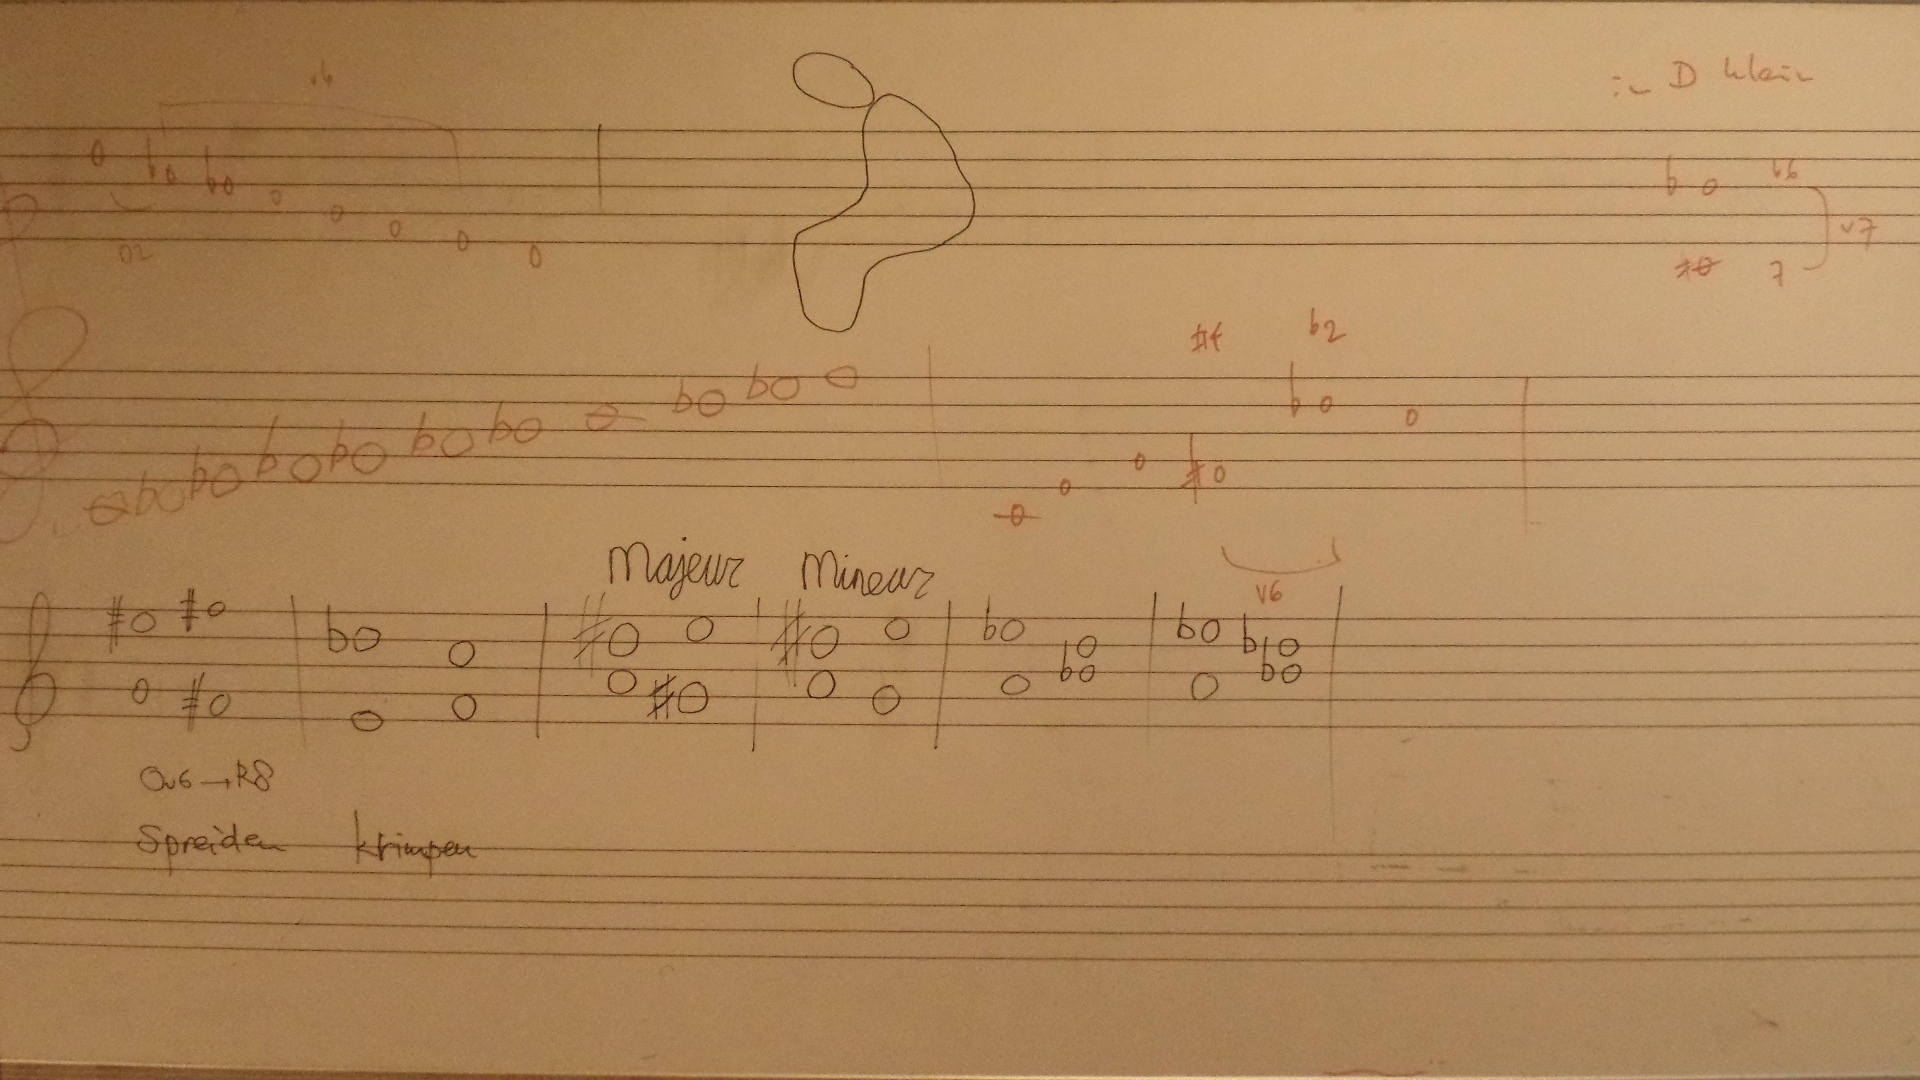 v6
in D klein
b6
v7
o2
7
#4 b2
Majeur Mineur
v6
Ov6→R8
Spreiden krimpen